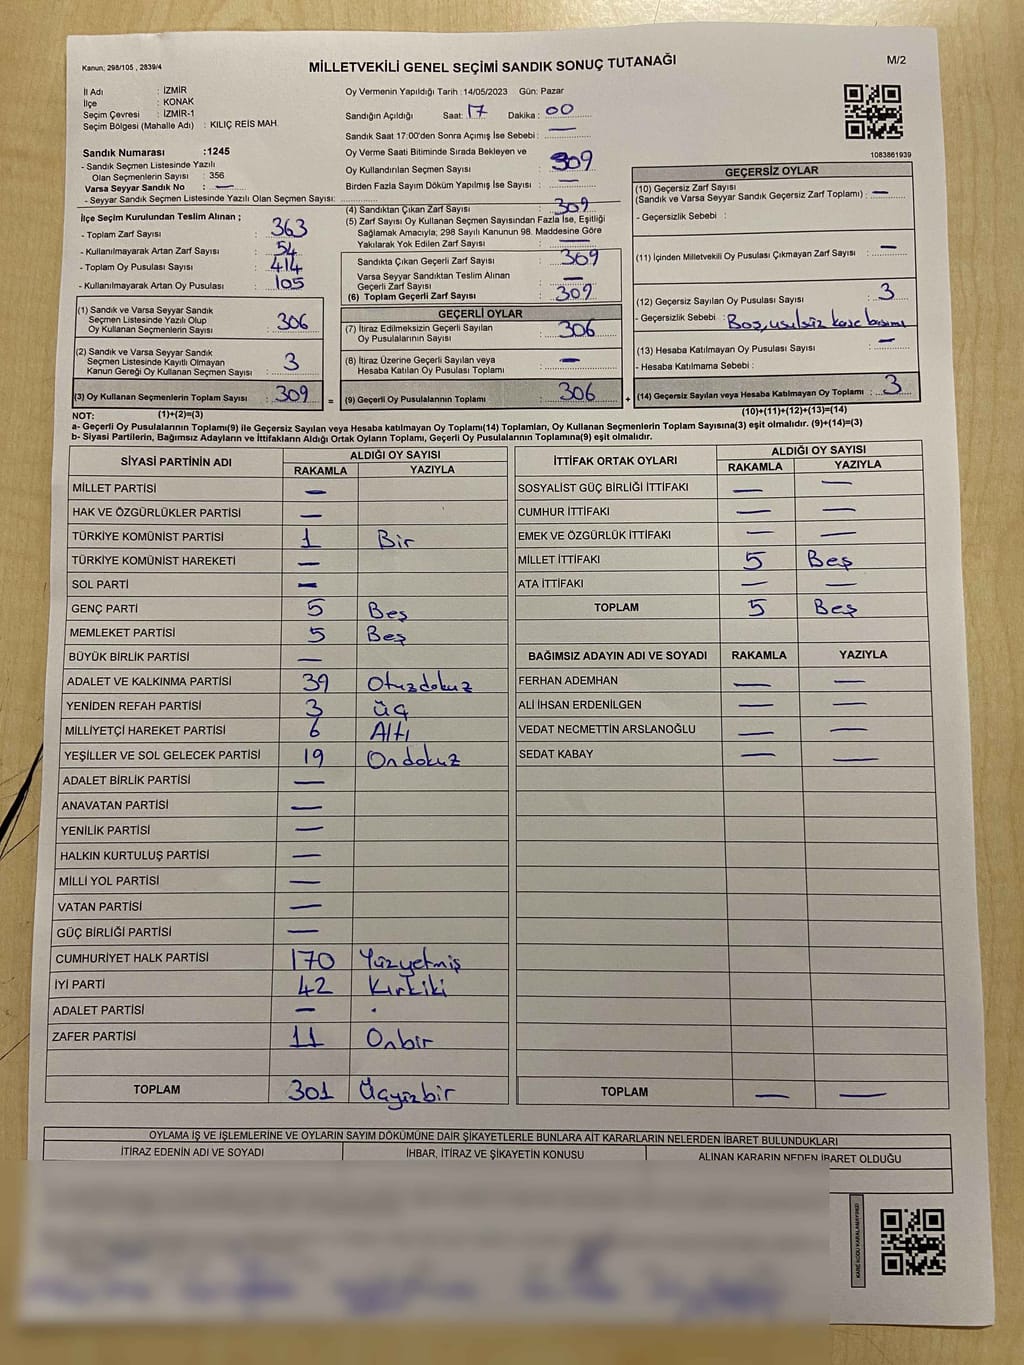 Kanun; 298/105 , 2839/4
MİLLETVEKİLİ GENEL SEÇİMİ SANDIK SONUÇ TUTANAĞI
M/2
İl Adı : İZMİR
İlçe : KONAK
Seçim Çevresi : İZMİR-1
Seçim Bölgesi (Mahalle Adı) : KILIÇ REİS MAH.
Oy Vermenin Yapıldığı Tarih : 14/05/2023 Gün: Pazar
Sandığın Açıldığı Saat: 17 Dakika : 00
Sandık Saat 17:00'den Sonra Açımış İse Sebebi : —
Oy Verme Saati Bitiminde Sırada Bekleyen ve
Oy Kullandırılan Seçmen Sayısı : 309
Birden Fazla Sayım Döküm Yapılmış İse Sayısı : —
1083861939
Sandık Numarası :1245
- Sandık Seçmen Listesinde Yazılı
Olan Seçmenlerin Sayısı : 356
Varsa Seyyar Sandık No : —
- Seyyar Sandık Seçmen Listesinde Yazılı Olan Seçmen Sayısı:
İlçe Seçim Kurulundan Teslim Alınan ;
- Toplam Zarf Sayısı : 363
- Kullanılmayarak Artan Zarf Sayısı : 54
- Toplam Oy Pusulası Sayısı : 414
- Kullanılmayarak Artan Oy Pusulası : 105
(1) Sandık ve Varsa Seyyar Sandık
Seçmen Listesinde Yazılı Olup
Oy Kullanan Seçmenlerin Sayısı : 306
(2) Sandık ve Varsa Seyyar Sandık
Seçmen Listesinde Kayıtlı Olmayan
Kanun Gereği Oy Kullanan Seçmen Sayısı : 3
(3) Oy Kullanan Seçmenlerin Toplam Sayısı : 309 =
(4) Sandıktan Çıkan Zarf Sayısı : 309
(5) Zarf Sayısı Oy Kullanan Seçmen Sayısından Fazla İse, Eşitliği
Sağlamak Amacıyla; 298 Sayılı Kanunun 98. Maddesine Göre
Yakılarak Yok Edilen Zarf Sayısı : —
Sandıkta Çıkan Geçerli Zarf Sayısı : 309
Varsa Seyyar Sandıktan Teslim Alınan
Geçerli Zarf Sayısı : —
(6) Toplam Geçerli Zarf Sayısı : 309
GEÇERLİ OYLAR
(7) İtiraz Edilmeksizin Geçerli Sayılan
Oy Pusulalarının Sayısı : 306
(8) İtiraz Üzerine Geçerli Sayılan veya
Hesaba Katılan Oy Pusulası Toplamı : —
(9) Geçerli Oy Pusulalarının Toplamı : 306 +
GEÇERSİZ OYLAR
(10) Geçersiz Zarf Sayısı
(Sandık ve Varsa Seyyar Sandık Geçersiz Zarf Toplamı) : —
- Geçersizlik Sebebi :
(11) İçinden Milletvekili Oy Pusulası Çıkmayan Zarf Sayısı : —
(12) Geçersiz Sayılan Oy Pusulası Sayısı : 3
- Geçersizlik Sebebi : Boş, usulsüz kaşe basımı
(13) Hesaba Katılmayan Oy Pusulası Sayısı : —
- Hesaba Katılmama Sebebi :
(14) Geçersiz Sayılan veya Hesaba Katılmayan Oy Toplamı : 3
NOT: (1)+(2)=(3) (10)+(11)+(12)+(13)=(14)
a- Geçerli Oy Pusulalarının Toplamı(9) ile Geçersiz Sayılan veya Hesaba katılmayan Oy Toplamı(14) Toplamları, Oy Kullanan Seçmenlerin Toplam Sayısına(3) eşit olmalıdır. (9)+(14)=(3)
b- Siyasi Partilerin, Bağımsız Adayların ve İttifakların Aldığı Ortak Oyların Toplamı, Geçerli Oy Pusulalarının Toplamına(9) eşit olmalıdır.
SİYASİ PARTİNİN ADI ALDIĞI OY SAYISI
RAKAMLA YAZIYLA
MİLLET PARTİSİ —
HAK VE ÖZGÜRLÜKLER PARTİSİ —
TÜRKİYE KOMÜNİST PARTİSİ 1 Bir
TÜRKİYE KOMÜNİST HAREKETİ —
SOL PARTİ —
GENÇ PARTİ 5 Beş
MEMLEKET PARTİSİ 5 Beş
BÜYÜK BİRLİK PARTİSİ —
ADALET VE KALKINMA PARTİSİ 39 Otuzdokuz
YENİDEN REFAH PARTİSİ 3 üç
MİLLİYETÇİ HAREKET PARTİSİ 6 Altı
YEŞİLLER VE SOL GELECEK PARTİSİ 19 Ondokuz
ADALET BİRLİK PARTİSİ —
ANAVATAN PARTİSİ —
YENİLİK PARTİSİ —
HALKIN KURTULUŞ PARTİSİ —
MİLLİ YOL PARTİSİ —
VATAN PARTİSİ —
GÜÇ BİRLİĞİ PARTİSİ —
CUMHURİYET HALK PARTİSİ 170 Yüzyetmiş
İYİ PARTİ 42 Kırkiki
ADALET PARTİSİ — .
ZAFER PARTİSİ 11 Onbir
TOPLAM 301 Üçyüzbir
İTTİFAK ORTAK OYLARI ALDIĞI OY SAYISI
RAKAMLA YAZIYLA
SOSYALİST GÜÇ BİRLİĞİ İTTİFAKI — —
CUMHUR İTTİFAKI — —
EMEK VE ÖZGÜRLÜK İTTİFAKI — —
MİLLET İTTİFAKI 5 Beş
ATA İTTİFAKI — —
TOPLAM 5 Beş
BAĞIMSIZ ADAYIN ADI VE SOYADI RAKAMLA YAZIYLA
FERHAN ADEMHAN — —
ALİ İHSAN ERDENİLGEN — —
VEDAT NECMETTİN ARSLANOĞLU — —
SEDAT KABAY — —
TOPLAM — —
OYLAMA İŞ VE İŞLEMLERİNE VE OYLARIN SAYIM DÖKÜMÜNE DAİR ŞİKAYETLERLE BUNLARA AİT KARARLARIN NELERDEN İBARET BULUNDUKLARI
İTİRAZ EDENİN ADI VE SOYADI İHBAR, İTİRAZ VE ŞİKAYETİN KONUSU ALINAN KARARIN NEDEN İBARET OLDUĞU
KARE KODU KARALAMAYINIZ!